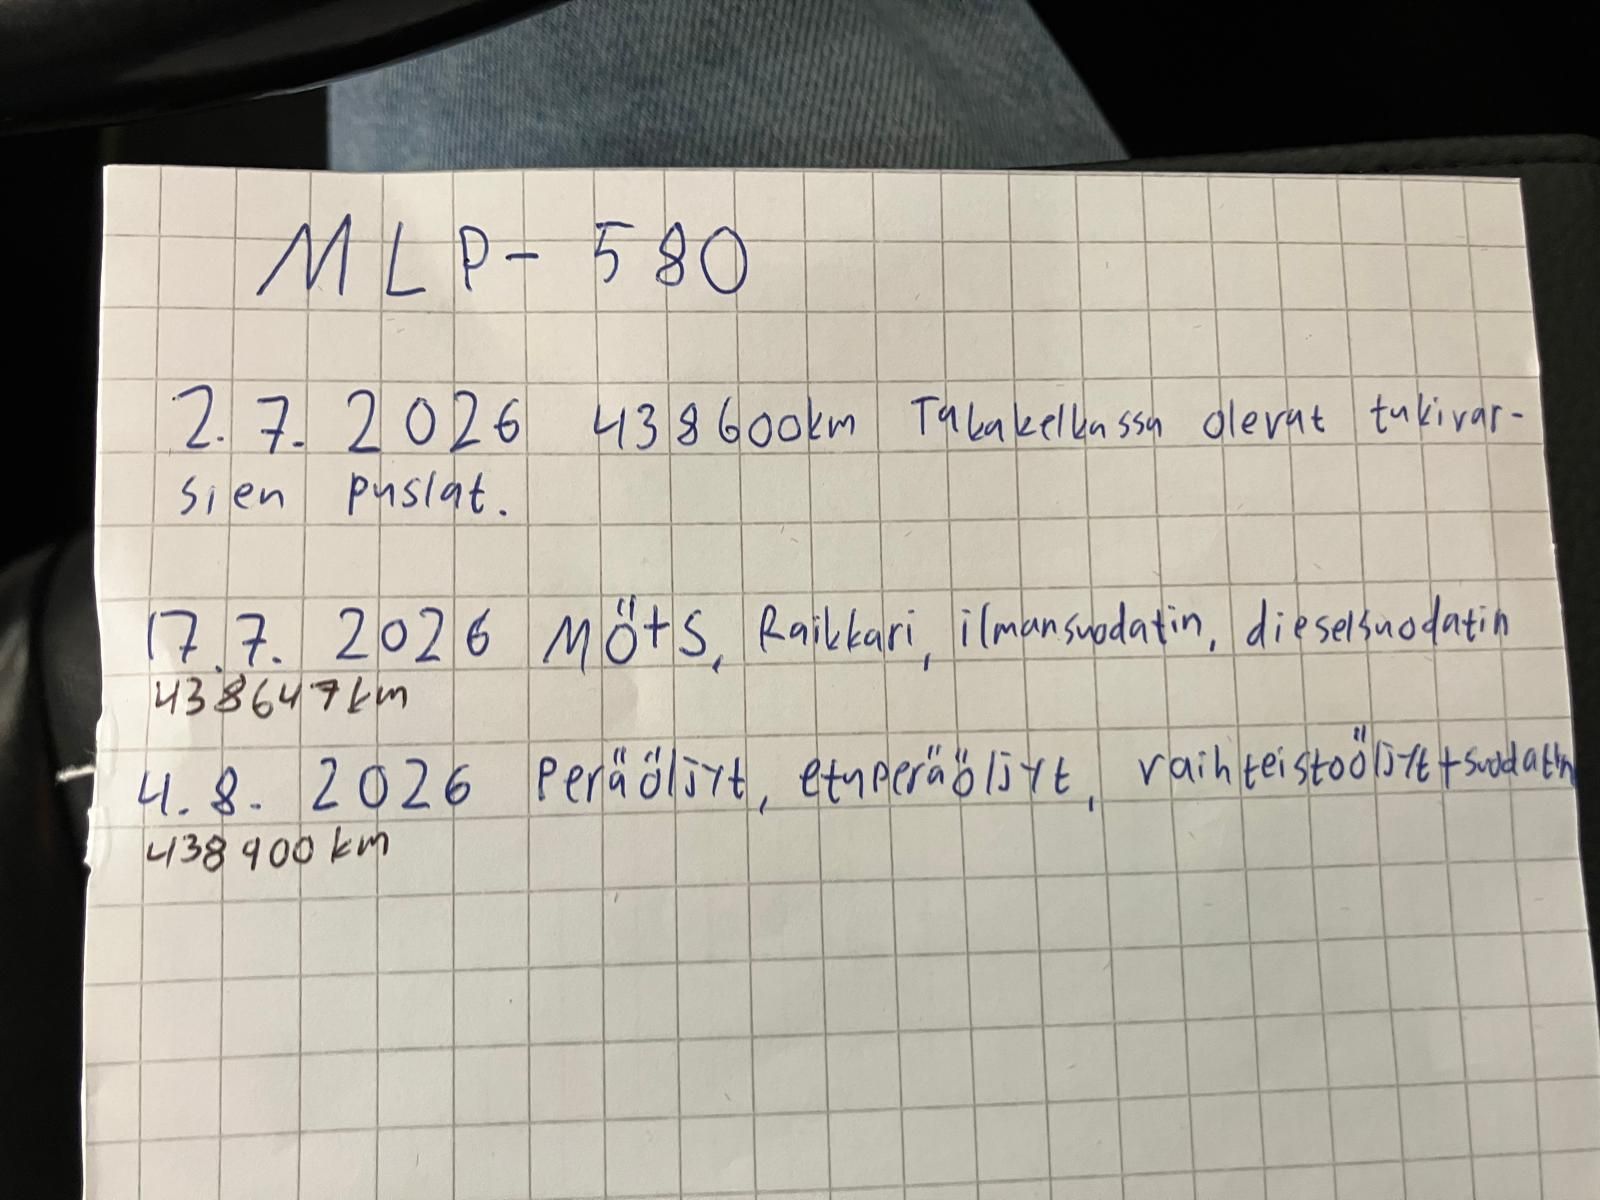 MLP-580
2.7.2026 438600km Takakelkassa olevat tukivar-
sien puslat.
17.7.2026 MÖ+S, Raikkari, ilmansuodatin, dieselsuodatin
438647km
4.8.2026 Peräöljyt, etuperäöljyt, vaihteistoöljyt+suodatin
438900km